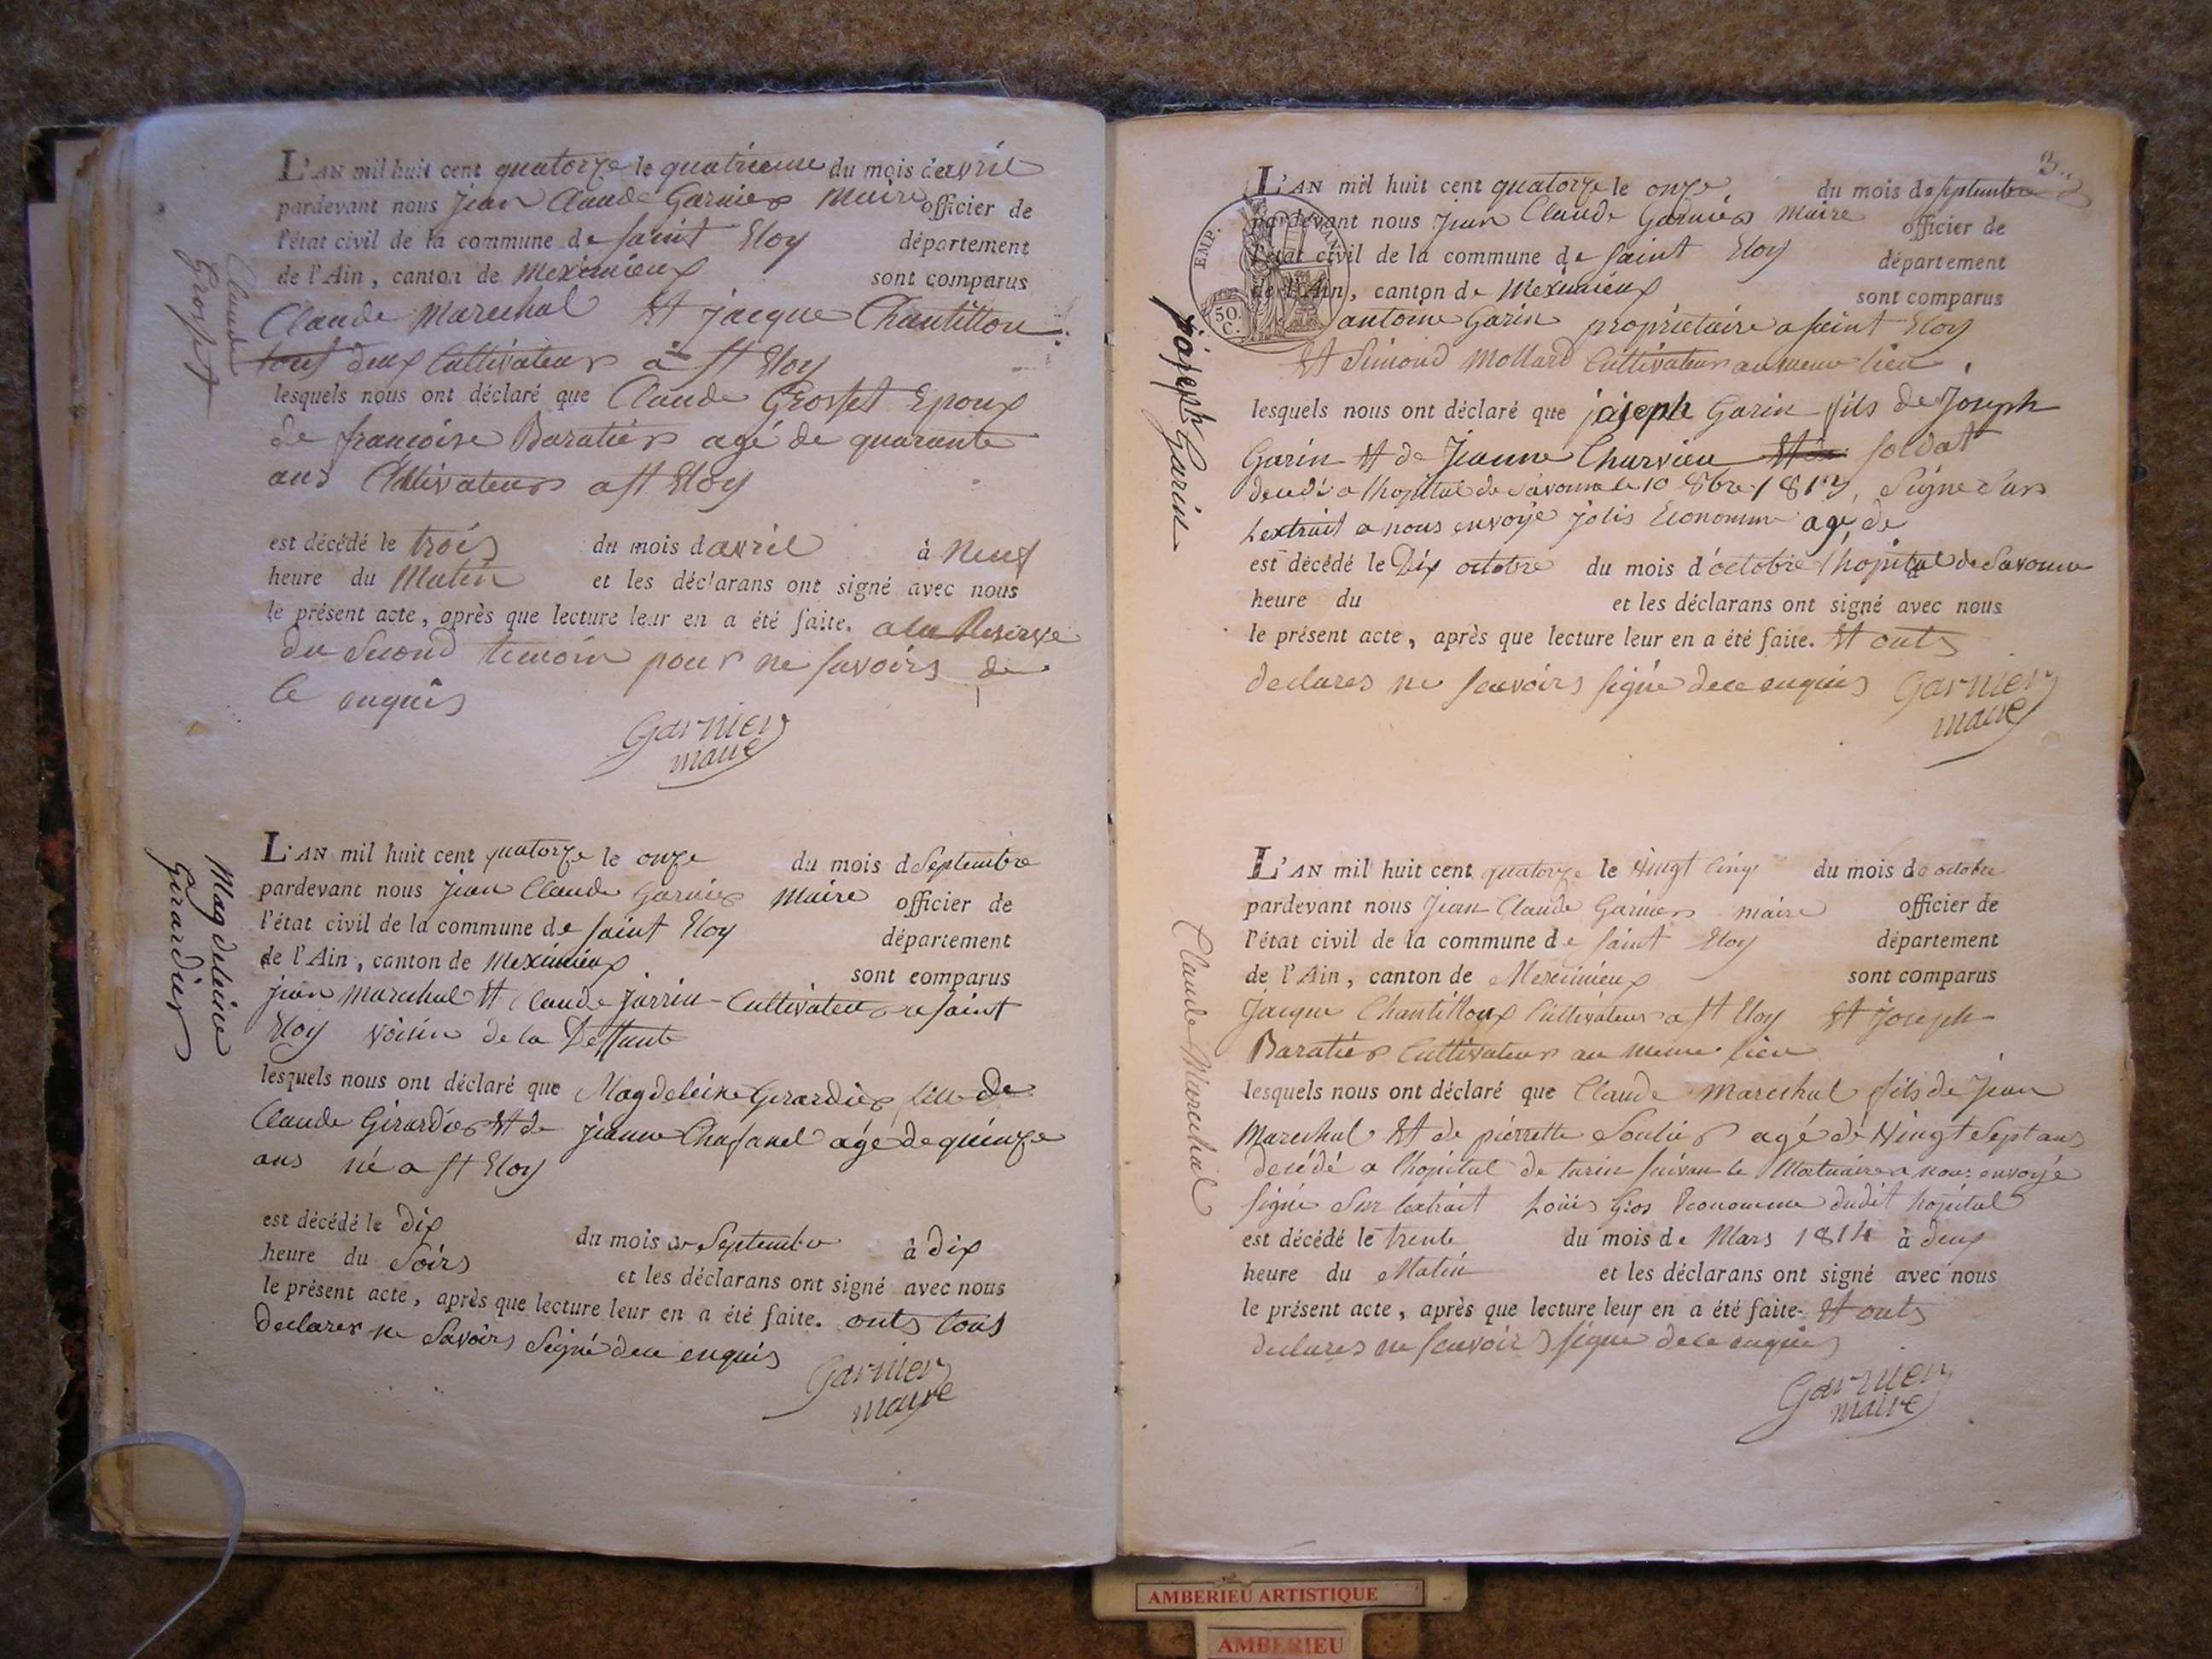 L'AN mil huit cent quatorze le quatrieme du mois d'avril
pardevant nous Jean Claude Garnier Maire officier de
l'état civil de la commune de saint Eloy département
de l'Ain, canton de Meximieux sont comparus
Claude Marechal Et jacque Chantillon
tous deux Cultivateur à st Eloy
lesquels nous ont déclaré que Claude Grosset Epoux
de françoise Baratier agé de quarante
ans Cultivateur a st Eloy
est décédé le trois du mois d avril à neuf
heure du Matin et les déclarans ont signé avec nous
le présent acte, après que lecture leur en a été faite. a la Reserve
du Second temoin pour ne savoirs de
ce enquis
Garnier
maire
Claude
Grosset
L'AN mil huit cent quatorze le onze du mois d Septembre
pardevant nous Jean Claude Garnier Maire officier de
l'état civil de la commune de saint Eloy département
de l'Ain, canton de Meximieux sont comparus
jean marechal Et Claude jarrin Cultivateur a saint
Eloy voisin de la Deffunte
lesquels nous ont déclaré que Magdeleine Girardier fille de
Claude Girardier Et de jeanne Chasanel agé de quinze
ans né a st Eloy
est décédé le dix du mois de Septembre à dix
heure du Soirs et les déclarans ont signé avec nous
le présent acte, après que lecture leur en a été faite. onts tous
declarer ne Savoirs Signé de ce enquis
Garnier
maire
Magdeleine
Girardier
EMP.
50
C.
L'AN mil huit cent quatorze le onze du mois de septembre
pardevant nous Jean Claude Garnier Maire officier de
l'état civil de la commune de saint Eloy département
de l'Ain, canton de Meximieux sont comparus
antoine Garin proprietaire a saint Eloy
Et Simond Mollard Cultivateur au meme lieu
lesquels nous ont déclaré que joseph Garin fils de Joseph
Garin Et de Jeanne Charvieu soldat
decedé a lhopital de Savonne le 10 8bre 1813, Signé Sur
Lextrait a nous envoyé jolis Economme agé de
est décédé le Dix octobre du mois d'octobre lhopital de Savonne
heure du et les déclarans ont signé avec nous
le présent acte, après que lecture leur en a été faite. Et onts
declares ne scavoirs signé de ce enquis
Garnier
maire
joseph Garin
L'AN mil huit cent quatorze le Vingt Cinq du mois de octobre
pardevant nous Jean Claude Garnier maire officier de
l'état civil de la commune de saint Eloy département
de l'Ain, canton de Meximieux sont comparus
Jacque Chantilloux Cultivateur a st Eloy Et Joseph
Baratier Cultivateur au meme lieu
lesquels nous ont déclaré que Claude Marechal fils de Jean
Marechal Et de pierrette Soulier agé de Vingt Sept ans
decédé a lhopital de turin suivan le Mortuaire a nous envoyé
signé Sur lextrait Louis Gros Economme dudit hopital
est décédé le trente du mois de Mars 1814 à deux
heure du Matin et les déclarans ont signé avec nous
le présent acte, après que lecture leur en a été faite. Et onts
declares ne scavoirs signé de ce enquis
Garnier
maire
Claude Marechal
AMBERIEU ARTISTIQUE
AMBERIEU